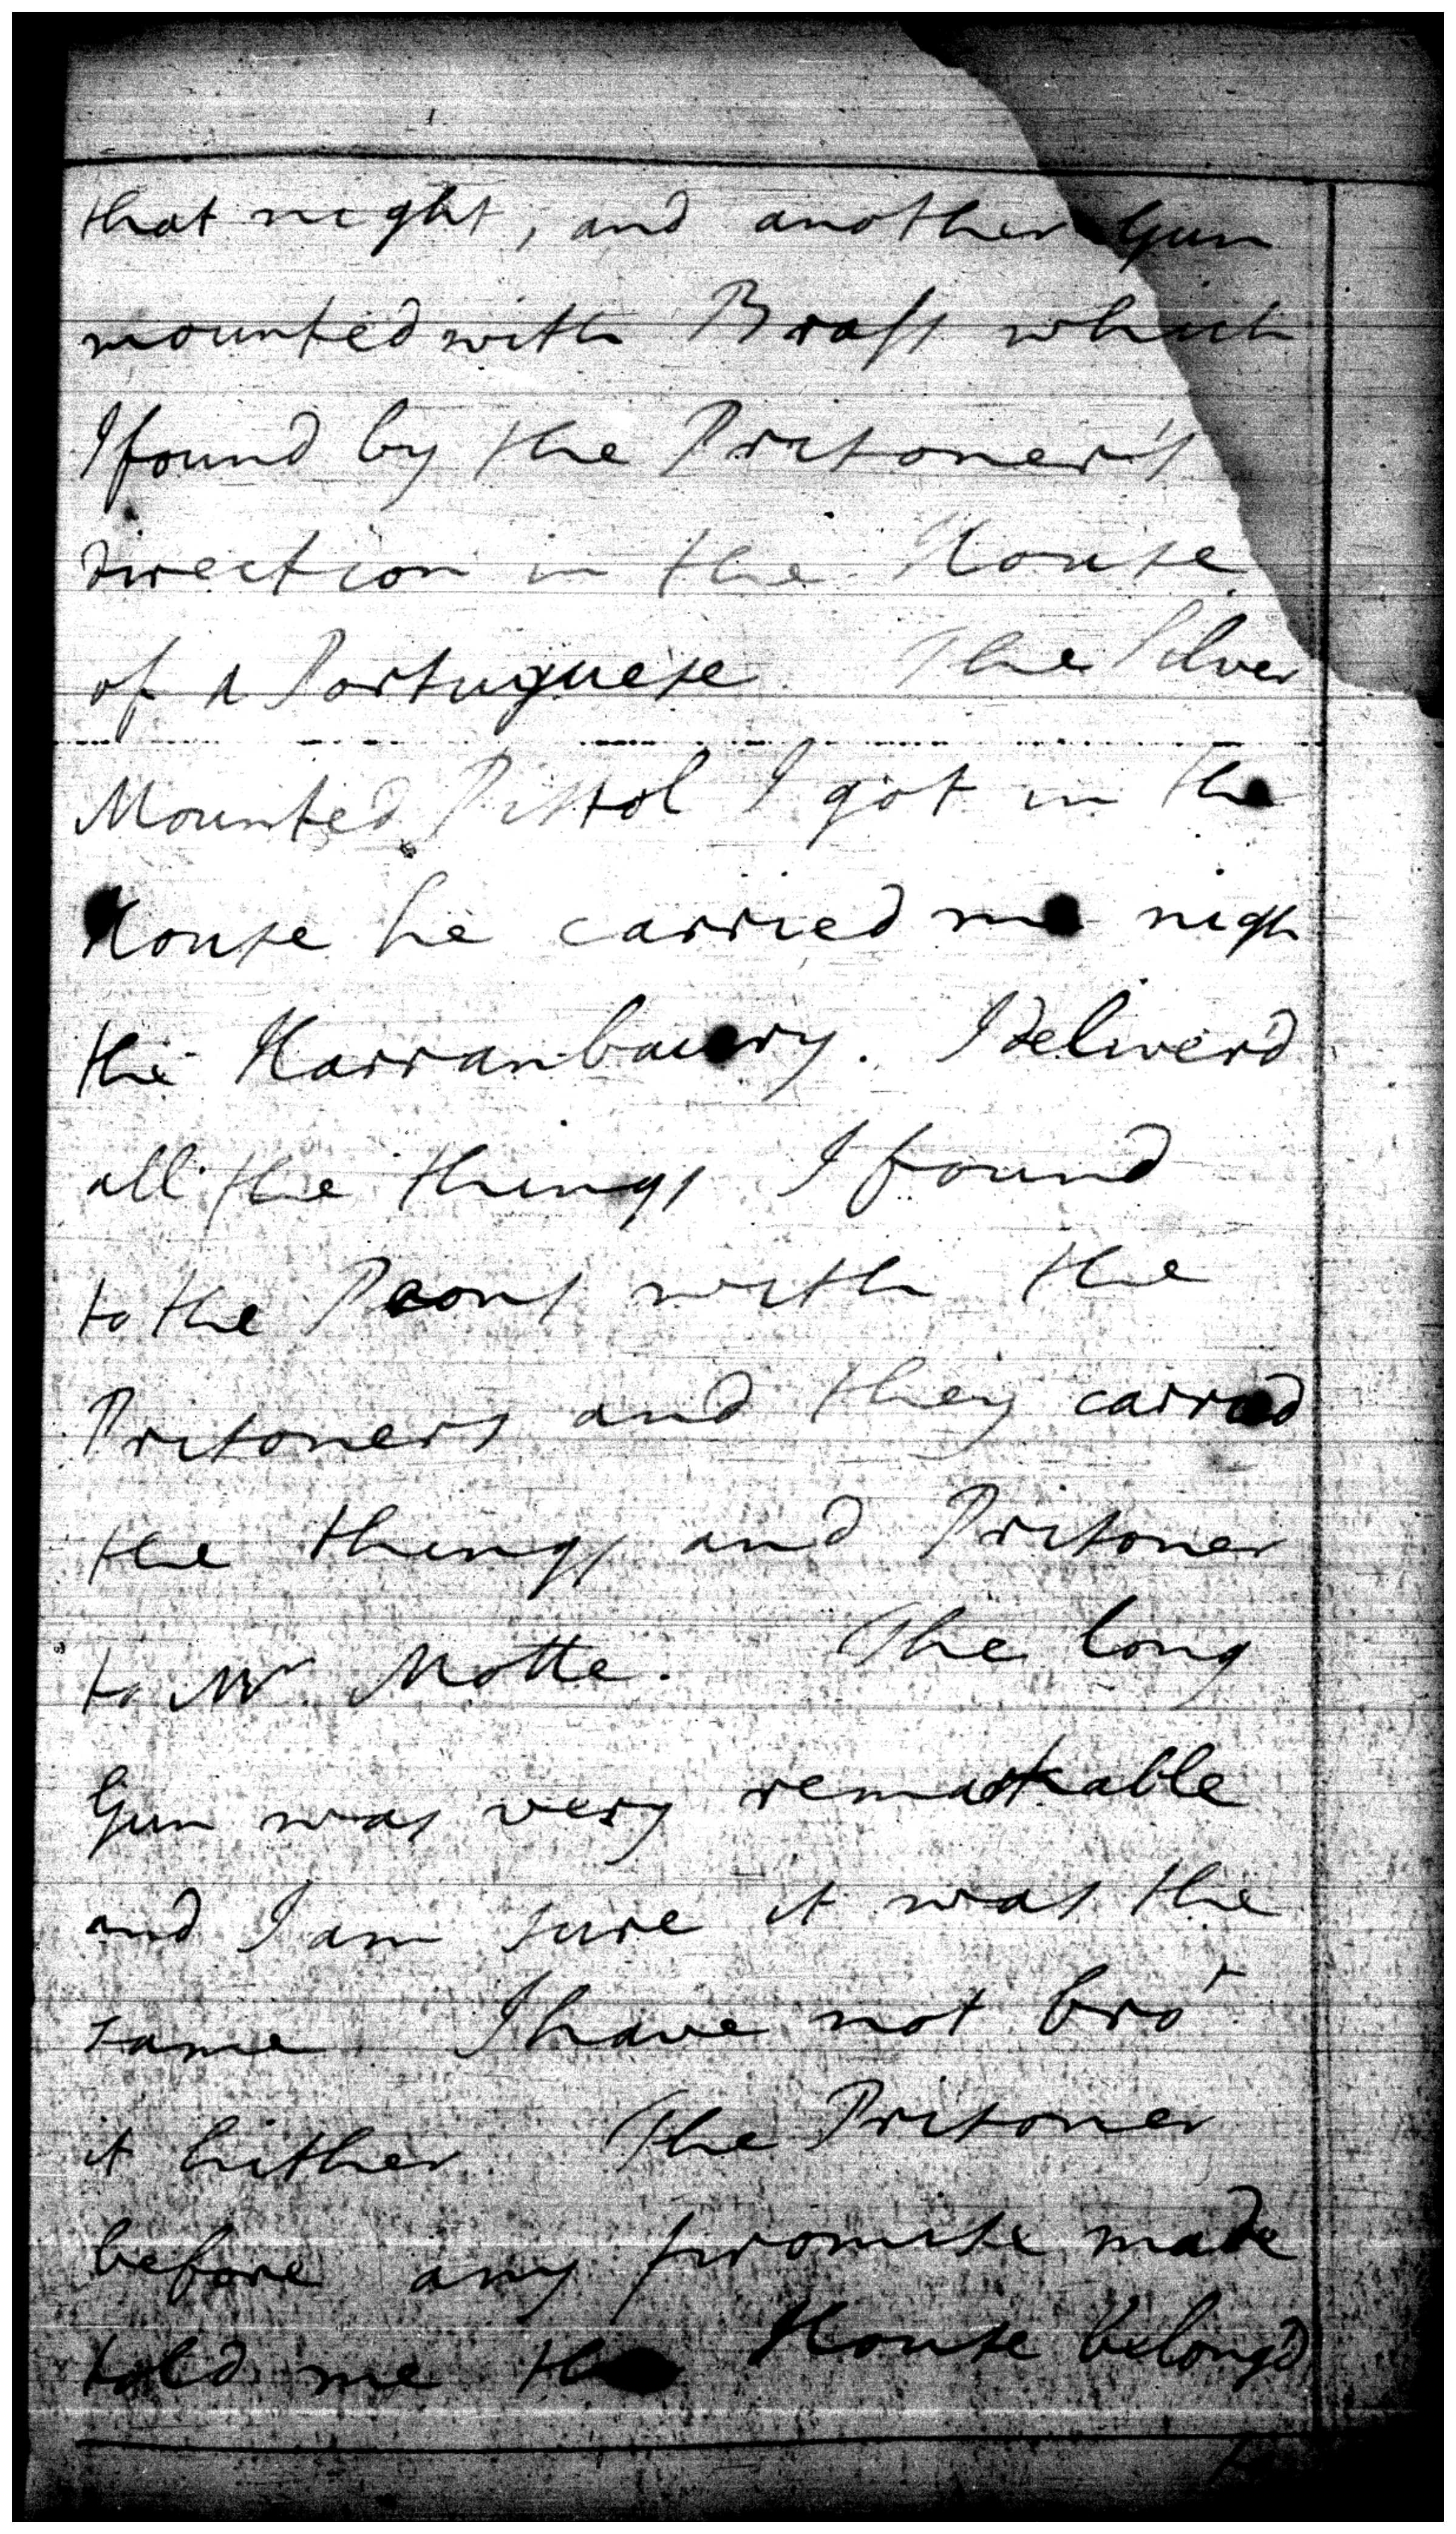 that night, and another Gun
mounted with Brass which
I found by the Prisoner's
direction in the House
of A Portuguese. The Silver
Mounted Pistol I got in the
House he carried me nigh
the Harranbaury. I deliver'd
all the things I found
to the Peons with the
Prisoners and they carried
the things and Prisoner
to Mr. Motte. The long
Gun was very remarkable
and I am sure it was the
same. I have not bro't
it hither. The Prisoner
before any promise made
told me the House belong'd